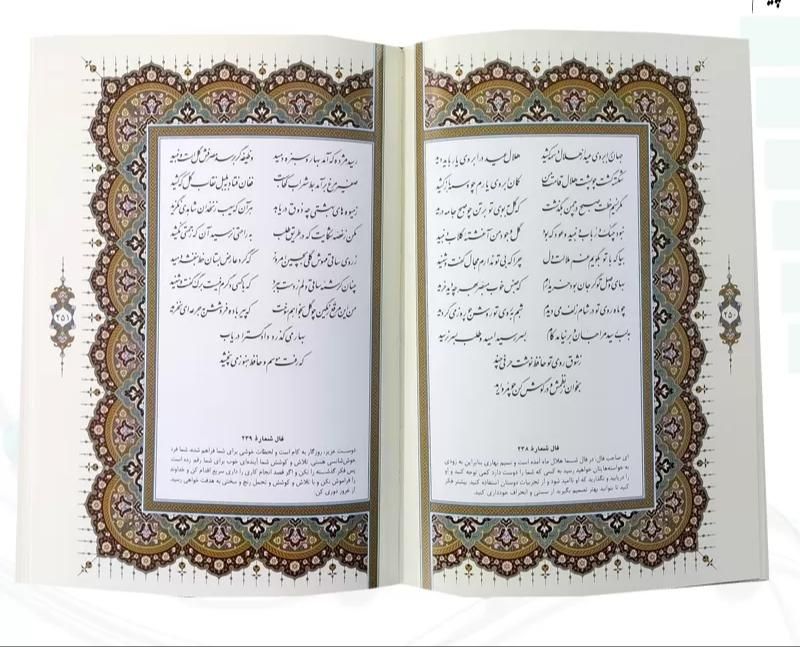 جهان بر ابروی عید از هلال وسمه کشید
هلال عید در ابروی یار باید دید
شکسته گشت چو پشت هلال قامت من
کمان ابروی یارم چو وسمه باز کشید
مگر نسیم خطت صبح در چمن بگذشت
که گل به بوی تو بر تن چو صبح جامه درید
نبود چنگ و رباب و نبید و عود که بود
گل وجود من آغشته گلاب و نبید
بیا که با تو بگویم غم ملالت دل
چرا که بی تو ندارم مجال گفت و شنید
بهای وصل تو گر جان بود خریدارم
که جنس خوب مبصر به هر چه دید خرید
چو ماه روی تو در شام زلف می دیدم
شبم به روی تو روشن چو روز می گردید
به لب رسید مرا جان و برنیامد کام
بسر رسید امید و طلب بسر نرسید
ز شوق روی تو حافظ نوشت حرفی چند
بخوان ز نظمش و در گوش کن چو مروارید
فال شمارهٔ ۲۳۸
ای صاحب فال، در فال شما هلال ماه آمده است و نسیم بهاری بنابراین به زودی
به خواسته‌هایتان خواهید رسید به کسی که شما را دوست دارد کمی توجه کنید و او
را دریابید و نگذارید که او ناامید شود و از تجربیات دوستان استفاده کنید. بیشتر فکر
کنید تا بتوانید بهتر تصمیم بگیرید از سستی و انحراف خودداری کنید.
۲۵۰
رسید مژده که آمد بهار و سبزه دمید
وظیفه گر برسد مصرفش گل است و نبید
صفیر مرغ برآمد بط شراب کجاست
فغان فتاد به بلبل نقاب گل که کشید
ز میوه های بهشتی چه ذوق دریابد
هر آن که سیب زنخدان شاهدی نگزید
مکن ز غصه شکایت که در طریق طلب
به راحتی نرسید آن که زحمتی نکشید
ز روی ساقی مهوش گلی بچین امروز
که گرد عارض بستان خط بنفشه دمید
چنان کرشمه ساقی دلم ز دست ببرد
که با کسی دگرم نیست برگ گفت و شنید
من این مرقع رنگین چو گل بخواهم سوخت
که پیر باده فروشش به جرعه ای نخرید
بهار می گذرد دادگسترا دریاب
که رفت موسم و حافظ هنوز می نچشید
فال شمارهٔ ۲۳۹
دوست عزیز، روزگار به کام است و لحظات خوشی برای شما فراهم شده، شما فرد
خوش‌شانسی هستی. تلاش و کوشش شما آینده‌ای خوب برای شما رقم زده است
پس فکر گذشته را نکن و اگر قصد انجام کاری را داری سریع اقدام کن و خداوند
را فراموش نکن و با تلاش و کوشش و تحمل رنج و سختی به هدفت خواهی رسید.
از غرور دوری کن.
۲۵۱